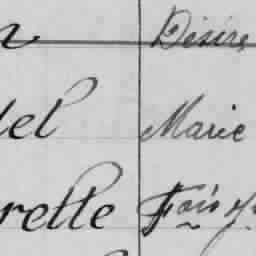 n Désiré
del Marie
rette Fois